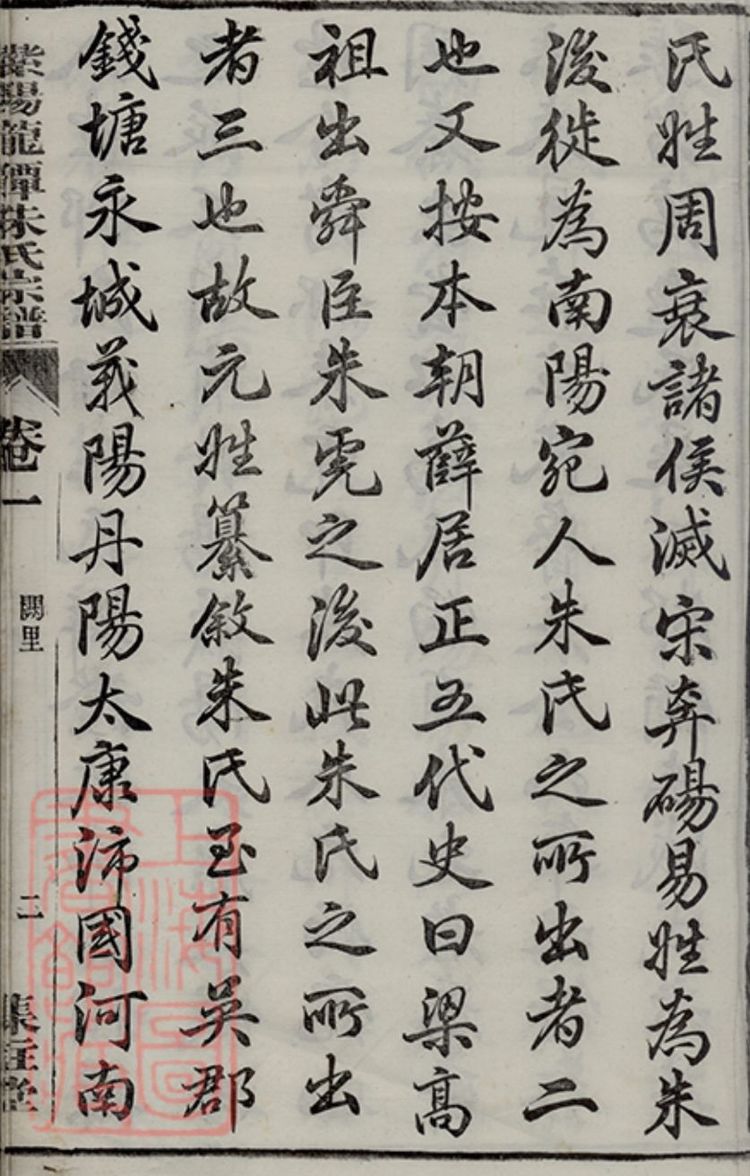 氏姓周衰諸侯滅宋奔碭易姓為朱
後徙為南陽宛人朱氏之所出者二
也又按本朝薛居正五代史曰梁高
祖出舜臣朱虎之後此朱氏之所出
者三也故元姓纂敘朱氏望有吳郡
錢塘永城義陽丹陽太康沛國河南
紫陽龍潭朱氏宗譜
卷一
闕里
二